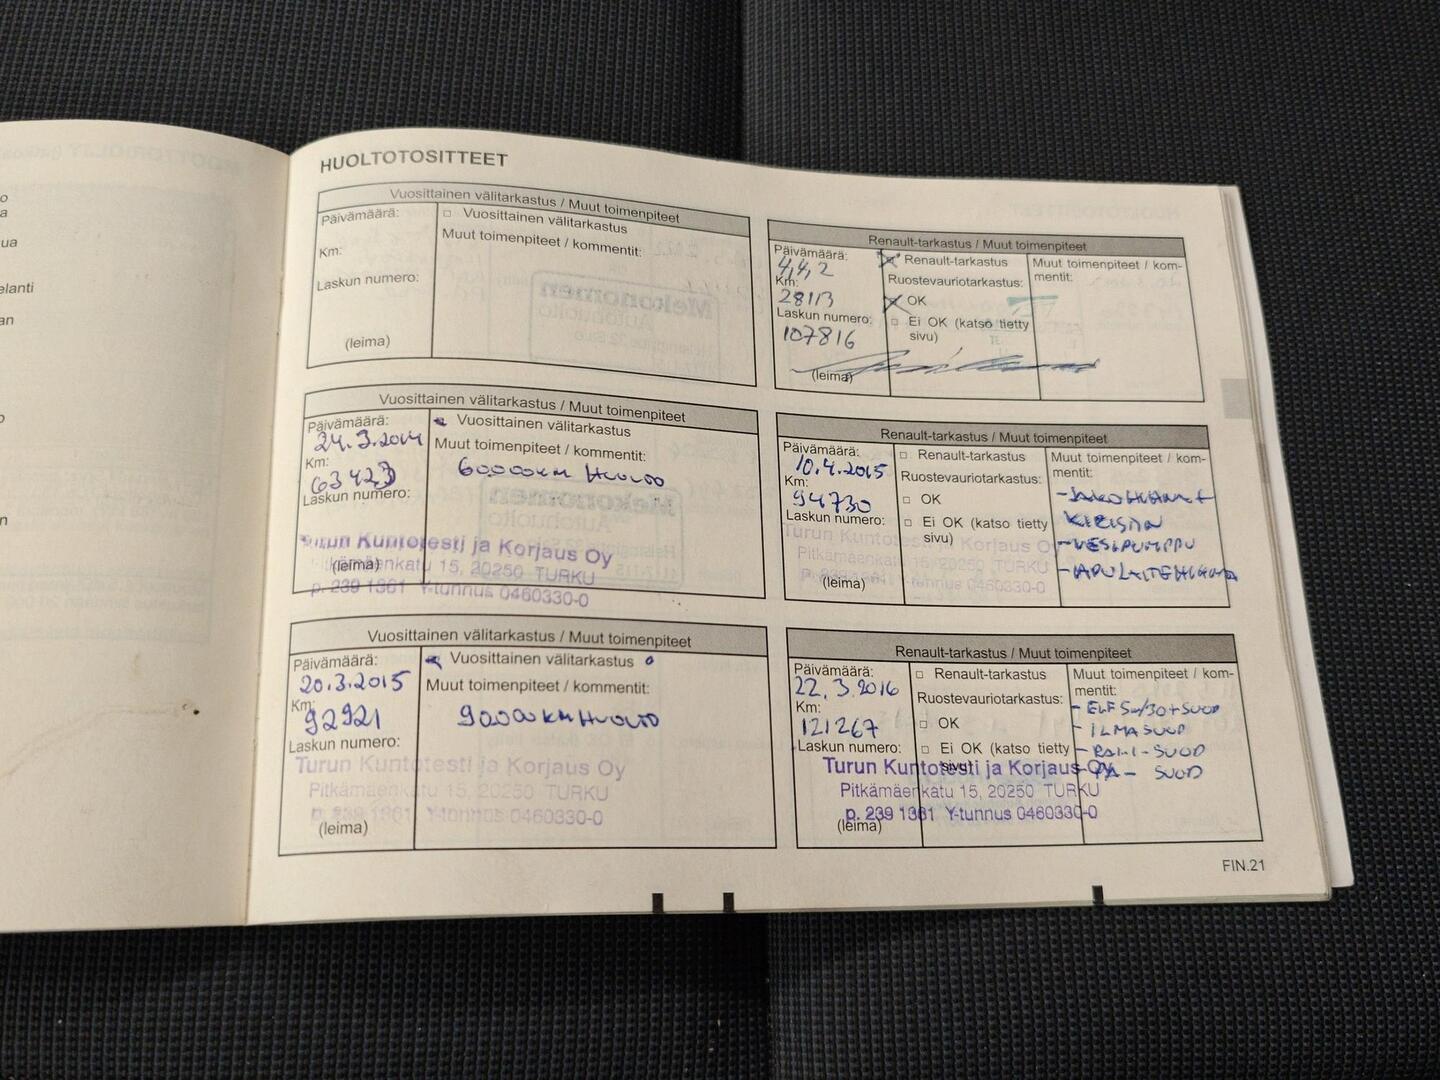 o
a
ua
elanti
an
o
n
HUOLTOTOSITTEET
Vuosittainen välitarkastus / Muut toimenpiteet
Päivämäärä:
□ Vuosittainen välitarkastus
Km:
Muut toimenpiteet / kommentit:
Laskun numero:
(leima)
Renault-tarkastus / Muut toimenpiteet
Päivämäärä:
4,4,2
Km:
28113
Laskun numero:
107816
(leima)
Renault-tarkastus
Ruostevauriotarkastus:
OK
□ Ei OK (katso tietty
sivu)
Muut toimenpiteet / kom-
mentit:
Vuosittainen välitarkastus / Muut toimenpiteet
Päivämäärä:
24.3.2014
Km:
63423
Laskun numero:
Vuosittainen välitarkastus
Muut toimenpiteet / kommentit:
60.000KM HUOLTO
Turun Kuntotesti ja Korjaus Oy
(leima)
Pitkämäenkatu 15, 20250 TURKU
p. 239 1361 Y-tunnus 0460330-0
Renault-tarkastus / Muut toimenpiteet
Päivämäärä:
10.4.2015
Km:
94730
Laskun numero:
□ Renault-tarkastus
Ruostevauriotarkastus:
□ OK
□ Ei OK (katso tietty
sivu)
Muut toimenpiteet / kom-
mentit:
- JAKOHIHNA +
KIRISTIN
- VESIPUMPPU
- APULAITEHIHNA
Turun Kuntotesti ja Korjaus Oy
Pitkämäenkatu 15, 20250 TURKU
p. 239 1361 Y-tunnus 0460330-0
(leima)
Vuosittainen välitarkastus / Muut toimenpiteet
Päivämäärä:
20.3.2015
Km:
92921
Laskun numero:
Vuosittainen välitarkastus
Muut toimenpiteet / kommentit:
90.000KM HUOLTO
Turun Kuntotesti ja Korjaus Oy
Pitkämäenkatu 15, 20250 TURKU
p. 239 1361 Y-tunnus 0460330-0
(leima)
Renault-tarkastus / Muut toimenpiteet
Päivämäärä:
22.3.2016
Km:
121267
Laskun numero:
□ Renault-tarkastus
Ruostevauriotarkastus:
□ OK
□ Ei OK (katso tietty
sivu)
Muut toimenpiteet / kom-
mentit:
- ELF 5w/30 + SUOD
- ILMASUOD
- RAKI - SUOD
- PA - SUOD
Turun Kuntotesti ja Korjaus Oy
Pitkämäenkatu 15, 20250 TURKU
p. 239 1361 Y-tunnus 0460330-0
(leima)
FIN.21